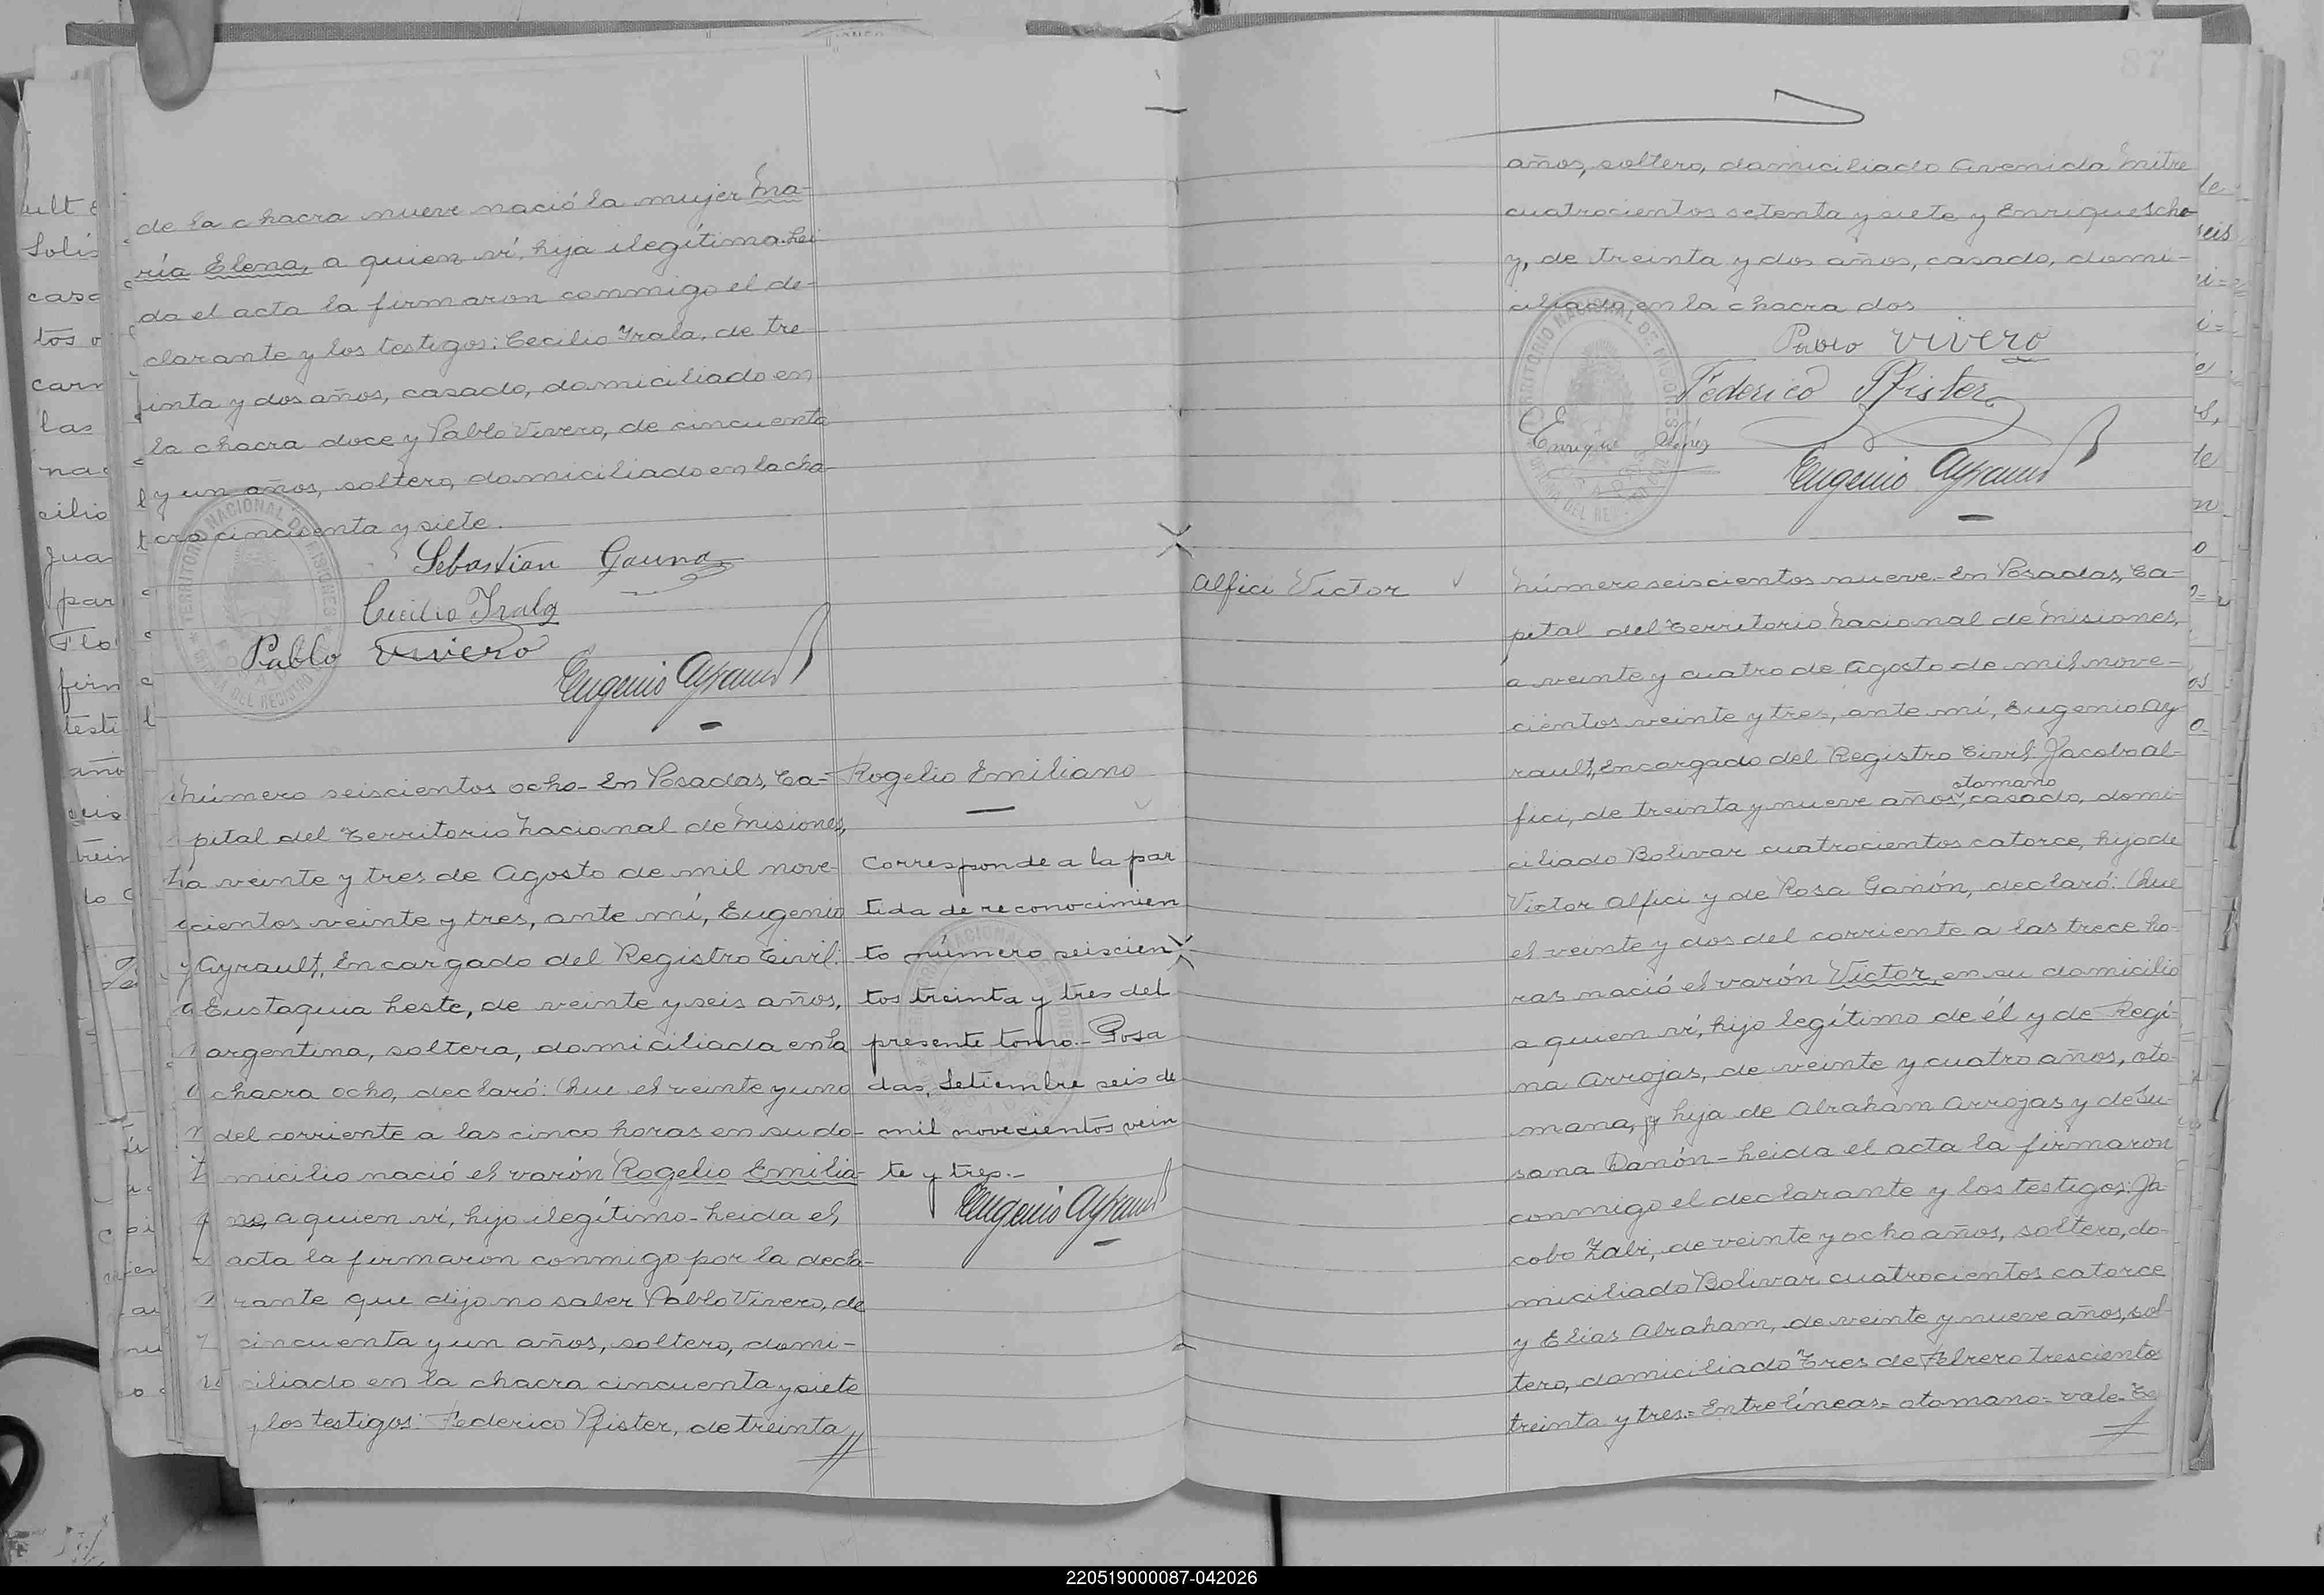 de la chacra nueve nació la mujer Ma-
ría Elena, a quien ví, hija ilegítima. Leí-
da el acta la firmaron conmigo el de-
clarante y los testigos: Cecilio Irala, de tre
inta y dos años, casado, domiciliado en
la chacra doce y Pablo Vivero, de cincuenta
y un años, soltero, domiciliado en la cha-
cra cincuenta y siete.
Sebastian Gauna
Cecilio Irala
Pablo Vivero
Eugenio Ayrault
TERRITORIO NACIONAL DE MISIONES
Número seiscientos ocho- En Posadas, Ca-
pital del Territorio Nacional de Misiones,
a veinte y tres de Agosto de mil nove-
cientos veinte y tres, ante mí, Eugenio
Ayrault, Encargado del Registro Civil:
Eustaquia Leste, de veinte y seis años,
argentina, soltera, domiciliada en la
chacra ocho, declaró: Que el veinte y uno
del corriente a las cinco horas en su do-
micilio nació el varón Rogelio Emilia-
no, a quien ví, hijo ilegítimo- Leida el
acta la firmaron conmigo por la decla-
rante que dijo no saber Pablo Vivero, de
cincuenta y un años, soltero, domi-
ciliado en la chacra cincuenta y siete
y los testigos: Federico Pfister, de treinta
Rogelio Emiliano
Corresponde a la par
tida de reconocimien
to número seiscien
tos treinta y tres del
presente tomo.- Posa
das, Setiembre seis de
mil novecientos vein
te y tres.-
Eugenio Ayrault
87
años, soltero, domiciliado Avenida Mitre
cuatrocientos setenta y siete y Enrique Scho
y, de treinta y dos años, casado, domi-
ciliado en la chacra dos
Pablo Vivero
Federico Pfister
Enrique
Eugenio Ayrault
TERRITORIO NACIONAL DE MISIONES
Alfici Victor
Número seiscientos nueve- En Posadas, Ca-
pital del Territorio Nacional de Misiones,
a veinte y cuatro de Agosto de mil nove-
cientos veinte y tres, ante mí, Eugenio Ay
rault, Encargado del Registro Civil: Jacobo Al-
otomano
fici, de treinta y nueve años, casado, domi-
ciliado Bolivar cuatrocientos catorce, hijo de
Victor Alfici y de Rosa Ganón, declaró: Que
el veinte y dos del corriente a las trece ho-
ras nació el varón Victor, en su domicilio
a quien ví, hijo legítimo de él y de Regi-
na Arrojas, de veinte y cuatro años, oto-
mana, hija de Abraham Arrojas y de Su-
sana Danón- Leida el acta la firmaron
conmigo el declarante y los testigos: Ja
cobo Zabi, de veinte y ocho años, soltero, do-
miciliado Bolivar cuatrocientos catorce
y Elias Abraham, de veinte y nueve años, sol-
tero, domiciliado Tres de Febrero trescientos
treinta y tres.= Entre líneas= otomano= vale- Te
220519000087-042026